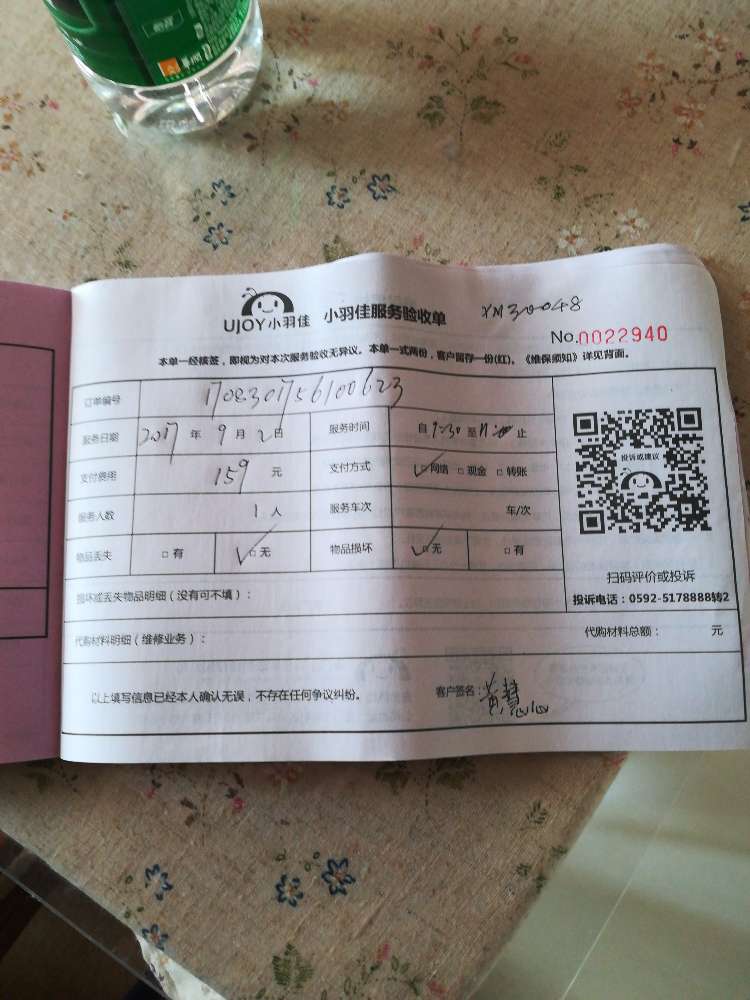 UJOY小羽佳 小羽佳服务验收单 XM30048
No.0022940
本单一经核签，即视为对本次服务验收无异议。本单一式两份，客户留存一份(红)。《维保须知》详见背面。
订单编号 1708301756100623
服务日期 2017 年 9 月 2 日 服务时间 自 至 止
支付费用 159 元 支付方式 ✓□网络 □现金 □转账
服务人数 1 人 服务车次 车/次
物品丢失 □有 ✓□无 物品损坏 ✓□无 □有
投诉或建议
扫码评价或投诉
投诉电话：0592-5178888转2
损坏或丢失物品明细（没有可不填）：
代购材料明细（维修业务）： 代购材料总额： 元
以上填写信息已经本人确认无误，不存在任何争议纠纷。 客户签名：黄慧